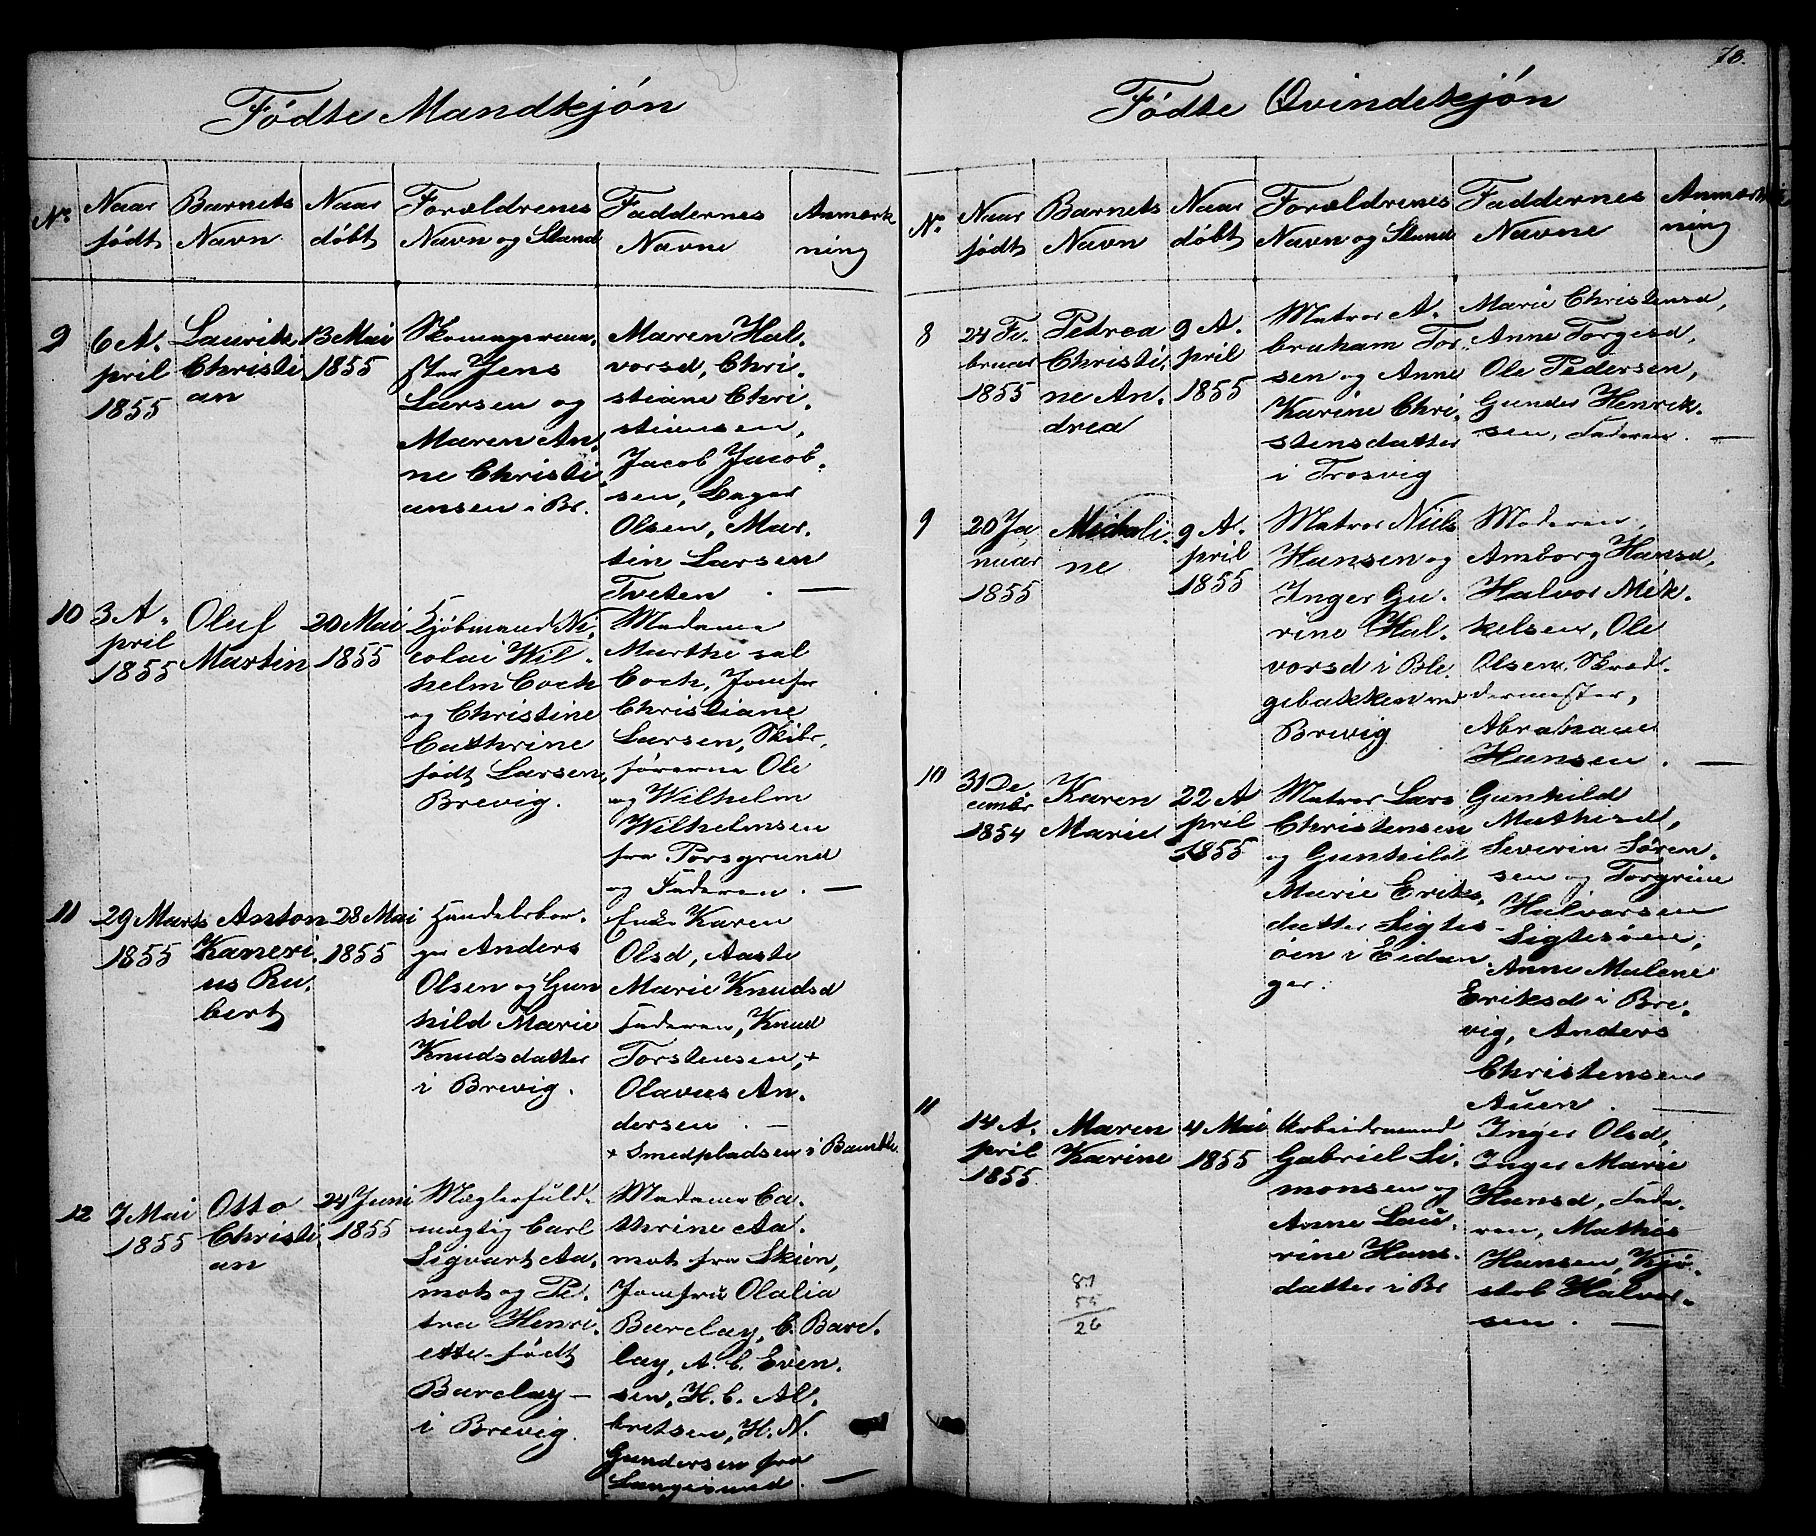 Fødte Mandkjón
No
Naar født
Barnets Navn
Naar døbt
Forældrenes Navn og Stand
Faddernes Navne
Anmærkning
9
6 A.
pril
1855
Lauritz
Christi
an
13 Mai
1855
Skomagerme.
ster Jens
Larsen og
Maren An,
ne Christi
ansen i Br.
Maren Hal,
vorsd, Chri,
stiane Chri,
stiansen,
Jacob Jacob,
sen,
Olsen, Mar,
tin Larsen
Tveten . —
10
3 A.
pril
1855
Oluf
Martin
20 Mai
1855
Kjøbmand Ni,
colai Wil,
helm Coch
og Christine
Cathrine
født Larsen,
Brevig.
Madame
Marthe sal
Coch, Jomfr
Christiane
Larsen, Skibs,
førerne Ole
og Wilhelm
Wilhelmsen
fra Porsgrund
og Faderen. —
11
29 Marts
1855
Anton
Kaneri,
us Ru,
bert
28 Mai
1855
Handelsbor,
ger Anders
Olsen og Gun
hild Marie
Knudsdatter
i Brevig.
Enke Karen
Olsd, Aaste
Marie Knudsd
Faderen, Knud
Torstensen, +
Olavus An,
dersen . —
+ Smedpladsen i Bamble.
12
7 Mai
1855
Otto
Christi,
an
24 Juni
1855
Mæglerfuld,
mægtig Carl
Sigvart Aa,
mot og Pe,
tra Henri,
ette født
Barclay —
i Brevig.
Madame Ca,
thrine Aa,
mot fra Skien,
Jomfru Olalia
Barclay, C. Barc,
lay, A. C. Even,
sen, H. C. Al,
bretsen, H. N.
Gundersen fra
Langesund . —
78.
Fødte Qvindekjón
No
Naar født
Barnets Navn
Naar døbt
Forældrenes Navn og Stand
Faddernes Navne
Anmærkning
8
24 Fe,
bruar
1855
Pedrea
Christi,
ne An,
drea
9 A.
pril
1855
Matros A.
braham Tor
sen og Anne
Karine Chri,
stensdatter
i Trosvig
Marie Christensd,
Anne Torgesd,
Ole Pedersen,
Gunder Henrik,
sen, Faderen . —
9
20 Ja
nuar
1855
Michali,
ne
9 A.
pril
1855
Matros Niels
Hansen og
Inger Gu,
rine Hal,
vorsd i Ble,
gebakken ved
Brevig
Moderen,
Amborg Hansd,
Halvor Mik,
kelsen, Ole
Olsen Skræd,
dermester,
Abraham
Hansen . —
10
31 De,
cembr
1854
Karen
Marie
22 A
pril
1855
Matros Lars
Christensen
og Gunhild
Marie Eriks,
datter Sigtes-
øen i Eidan,
ger.
Gunhild
Mathisd,
Severin Søren,
sen og Torgrine
Halvorsen
Sigtesøen,
Anne Malene
Eriksd i Bre,
vig, Anders
Christensen
Auen . —
11
14 A.
pril
1855
Maren
Karine
4 Mai
1855
Arbeidsmand
Gabriel Si,
monsen og
Anne Lau,
rine Hans,
datter i Br
Inger Olsd,
Inger Marie
Hansd, Fade,
ren, Mathis
Hansen, Kjø,
stob Halvor,
sen. —
81
55
26